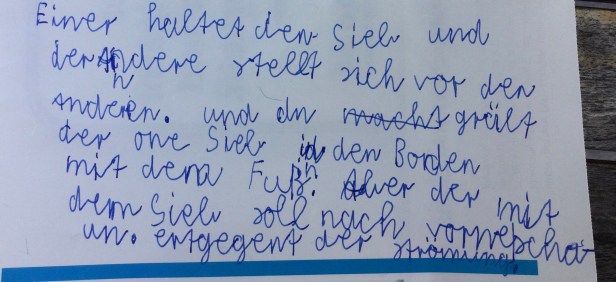 Einer haltet den Sieb und
der andere stellt sich vor den
anderen. und dn macht gräilt
der one Sieb in den Borden
mit dem Fuß. Aber der mit
dem Sieb soll nach vorne
un. entgegent der strömung.